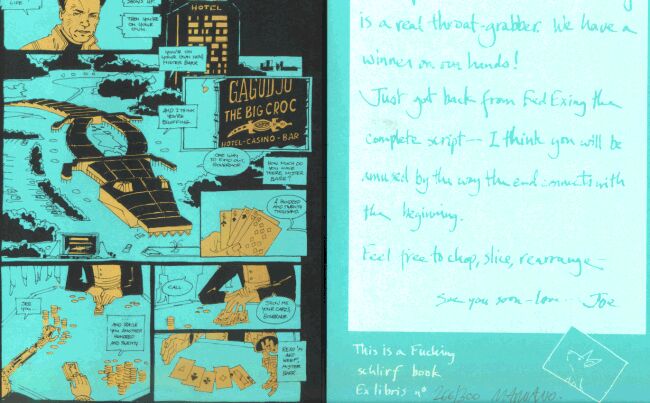 LIFE
SHOWS UP
THEN YOU'RE
ON YOUR
OWN.
HOTEL
YOU'RE ON
YOUR OWN NOW,
MISTER BARR
AND I THINK
YOU'RE
BLUFFING.
GAGUDJU
THE BIG CROC
HOTEL-CASINO-BAR
ONE WAY
TO FIND OUT,
GOVERNOR
HOW MUCH DO
YOU HAVE
THERE MISTER
BARR?
A HUNDRED
AND TWENTY
THOUSAND.
SEE
YOU...
AND RAISE
YOU ANOTHER
HUNDRED
AND TWENTY
CALL
SHOW ME
YOUR CARDS
READ 'M
AND
WEEP,
MISTER
BARR
is a real throat-grabber. We have a
winner on our hands!
Just got back from FedExing the
complete script— I think you will be
amused by the way the end connects with
the beginning.
Feel free to chop, slice, rearrange—
See you soon - love Joe
This is a Fucking
schlirf book
Ex libris n° 266/300